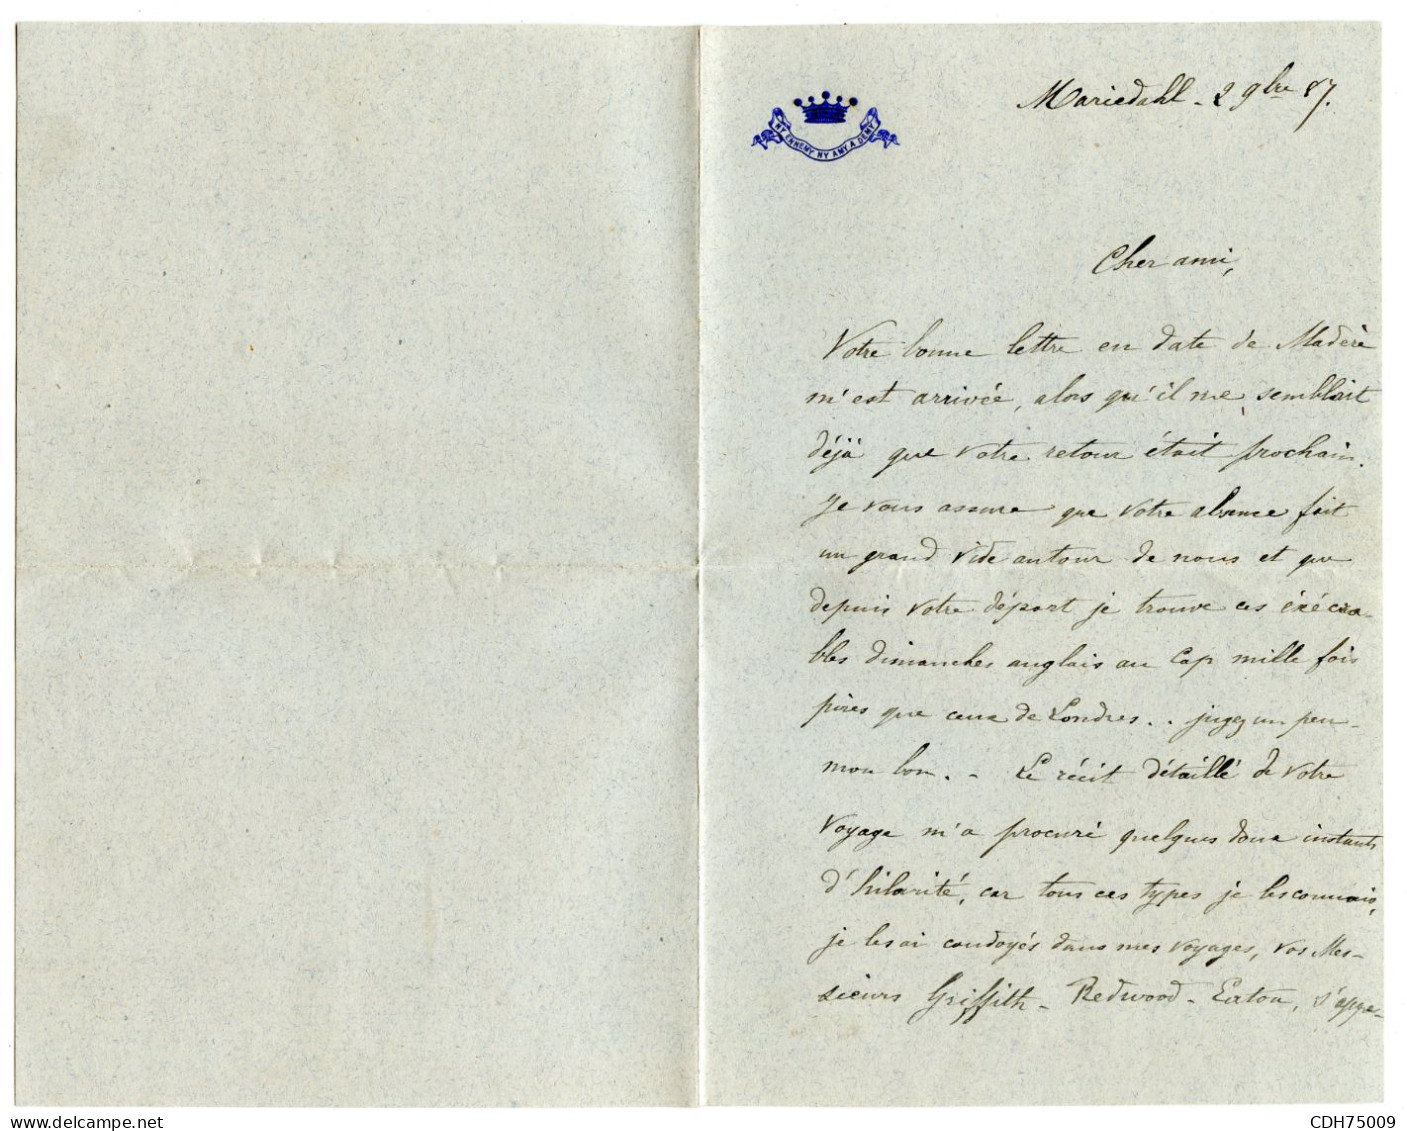 Mariedahl - 2 9bre 87.
NY ENNEMY NY AMY A DEMY
Cher ami,
Votre bonne lettre en date de Madère
m'est arrivée, alors qu'il me semblait
déjà que votre retour était prochain.
Je vous assure que votre absence fait
un grand vide autour de nous et que
depuis votre départ je trouve ces éxécra-
bles dimanches anglais au Cap mille fois
pires que ceux de Londres.. jugez un peu
mon bon. - Le récit détaillé de votre
voyage m'a procuré quelques doux instants
d'hilarité, car tous ces types je les connais,
je les ai coudoyés dans mes voyages, vos Mes-
sieurs Griffith - Redwood - Eaton, s'appe-
delcampe.net
CDH75009